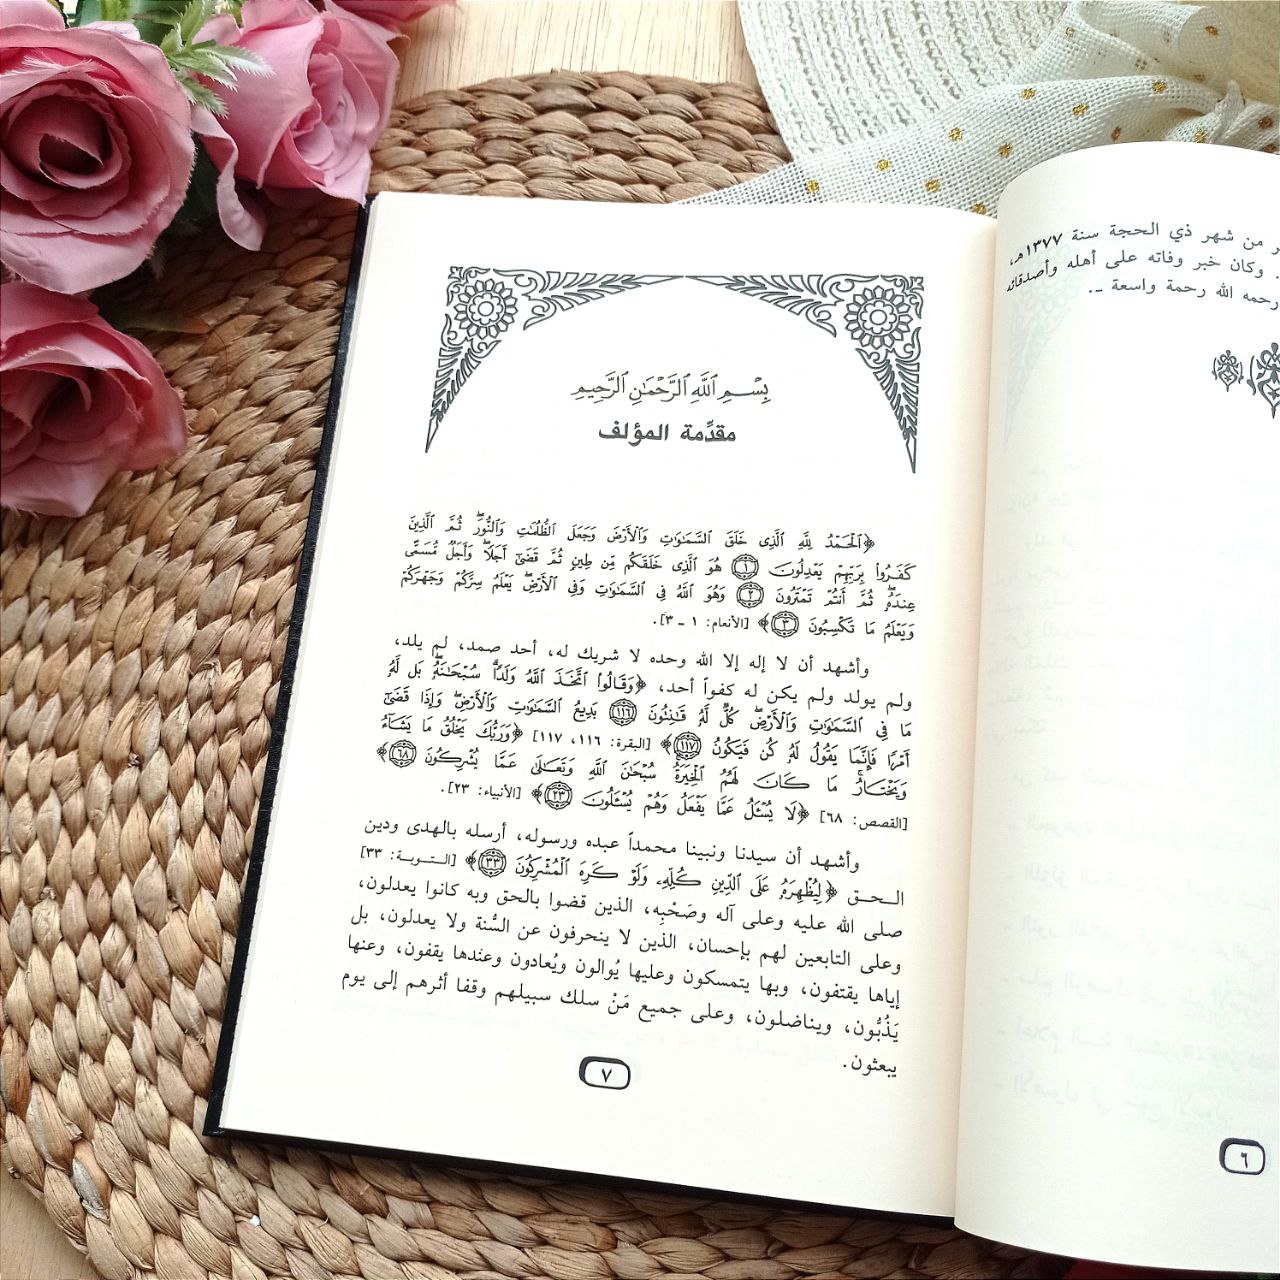 ر من شهر ذي الحجة سنة ١٣٧٧هـ،
وكان خبر وفاته على أهله وأصدقائه
رحمه الله رحمة واسعة ـ.
٦
بِسْمِ ٱللَّهِ ٱلرَّحْمَٰنِ ٱلرَّحِيمِ
مقدِّمة المؤلف
﴿ٱلْحَمْدُ لِلَّهِ ٱلَّذِى خَلَقَ ٱلسَّمَٰوَٰتِ وَٱلْأَرْضَ وَجَعَلَ ٱلظُّلُمَٰتِ وَٱلنُّورَ ۖ ثُمَّ ٱلَّذِينَ
كَفَرُوا۟ بِرَبِّهِمْ يَعْدِلُونَ ١ هُوَ ٱلَّذِى خَلَقَكُم مِّن طِينٍ ثُمَّ قَضَىٰٓ أَجَلًا ۖ وَأَجَلٌ مُّسَمًّى
عِندَهُۥ ۖ ثُمَّ أَنتُمْ تَمْتَرُونَ ٢ وَهُوَ ٱللَّهُ فِى ٱلسَّمَٰوَٰتِ وَفِى ٱلْأَرْضِ ۖ يَعْلَمُ سِرَّكُمْ وَجَهْرَكُمْ
وَيَعْلَمُ مَا تَكْسِبُونَ ٣﴾ [الأنعام: ١ ـ ٣].
وأشهد أن لا إله إلا الله وحده لا شريك له، أحد صمد، لم يلد،
ولم يولد ولم يكن له كفواً أحد، ﴿وَقَالُوا۟ ٱتَّخَذَ ٱللَّهُ وَلَدًا ۗ سُبْحَٰنَهُۥ ۖ بَل لَّهُۥ
مَا فِى ٱلسَّمَٰوَٰتِ وَٱلْأَرْضِ ۖ كُلٌّ لَّهُۥ قَٰنِتُونَ ١١٦ بَدِيعُ ٱلسَّمَٰوَٰتِ وَٱلْأَرْضِ ۖ وَإِذَا قَضَىٰٓ
أَمْرًا فَإِنَّمَا يَقُولُ لَهُۥ كُن فَيَكُونُ ١١٧﴾ [البقرة: ١١٦، ١١٧] ﴿وَرَبُّكَ يَخْلُقُ مَا يَشَآءُ
وَيَخْتَارُ ۗ مَا كَانَ لَهُمُ ٱلْخِيَرَةُ ۚ سُبْحَٰنَ ٱللَّهِ وَتَعَٰلَىٰ عَمَّا يُشْرِكُونَ ٦٨﴾
[القصص: ٦٨] ﴿لَا يُسْـَٔلُ عَمَّا يَفْعَلُ وَهُمْ يُسْـَٔلُونَ ٢٣﴾ [الأنبياء: ٢٣].
وأشهد أن سيدنا ونبينا محمداً عبده ورسوله، أرسله بالهدى ودين
الحق ﴿لِيُظْهِرَهُۥ عَلَى ٱلدِّينِ كُلِّهِۦ وَلَوْ كَرِهَ ٱلْمُشْرِكُونَ ٣٣﴾ [التوبة: ٣٣]
صلى الله عليه وعلى آله وصَحْبِه، الذين قضوا بالحق وبه كانوا يعدلون،
وعلى التابعين لهم بإحسان، الذين لا ينحرفون عن السُّنة ولا يعدلون، بل
إياها يقتفون، وبها يتمسكون وعليها يُوالون ويُعادون وعندها يقفون، وعنها
يَذُبُّون، ويناضلون، وعلى جميع مَنْ سلك سبيلهم وقفا أثرهم إلى يوم
يبعثون.
٧